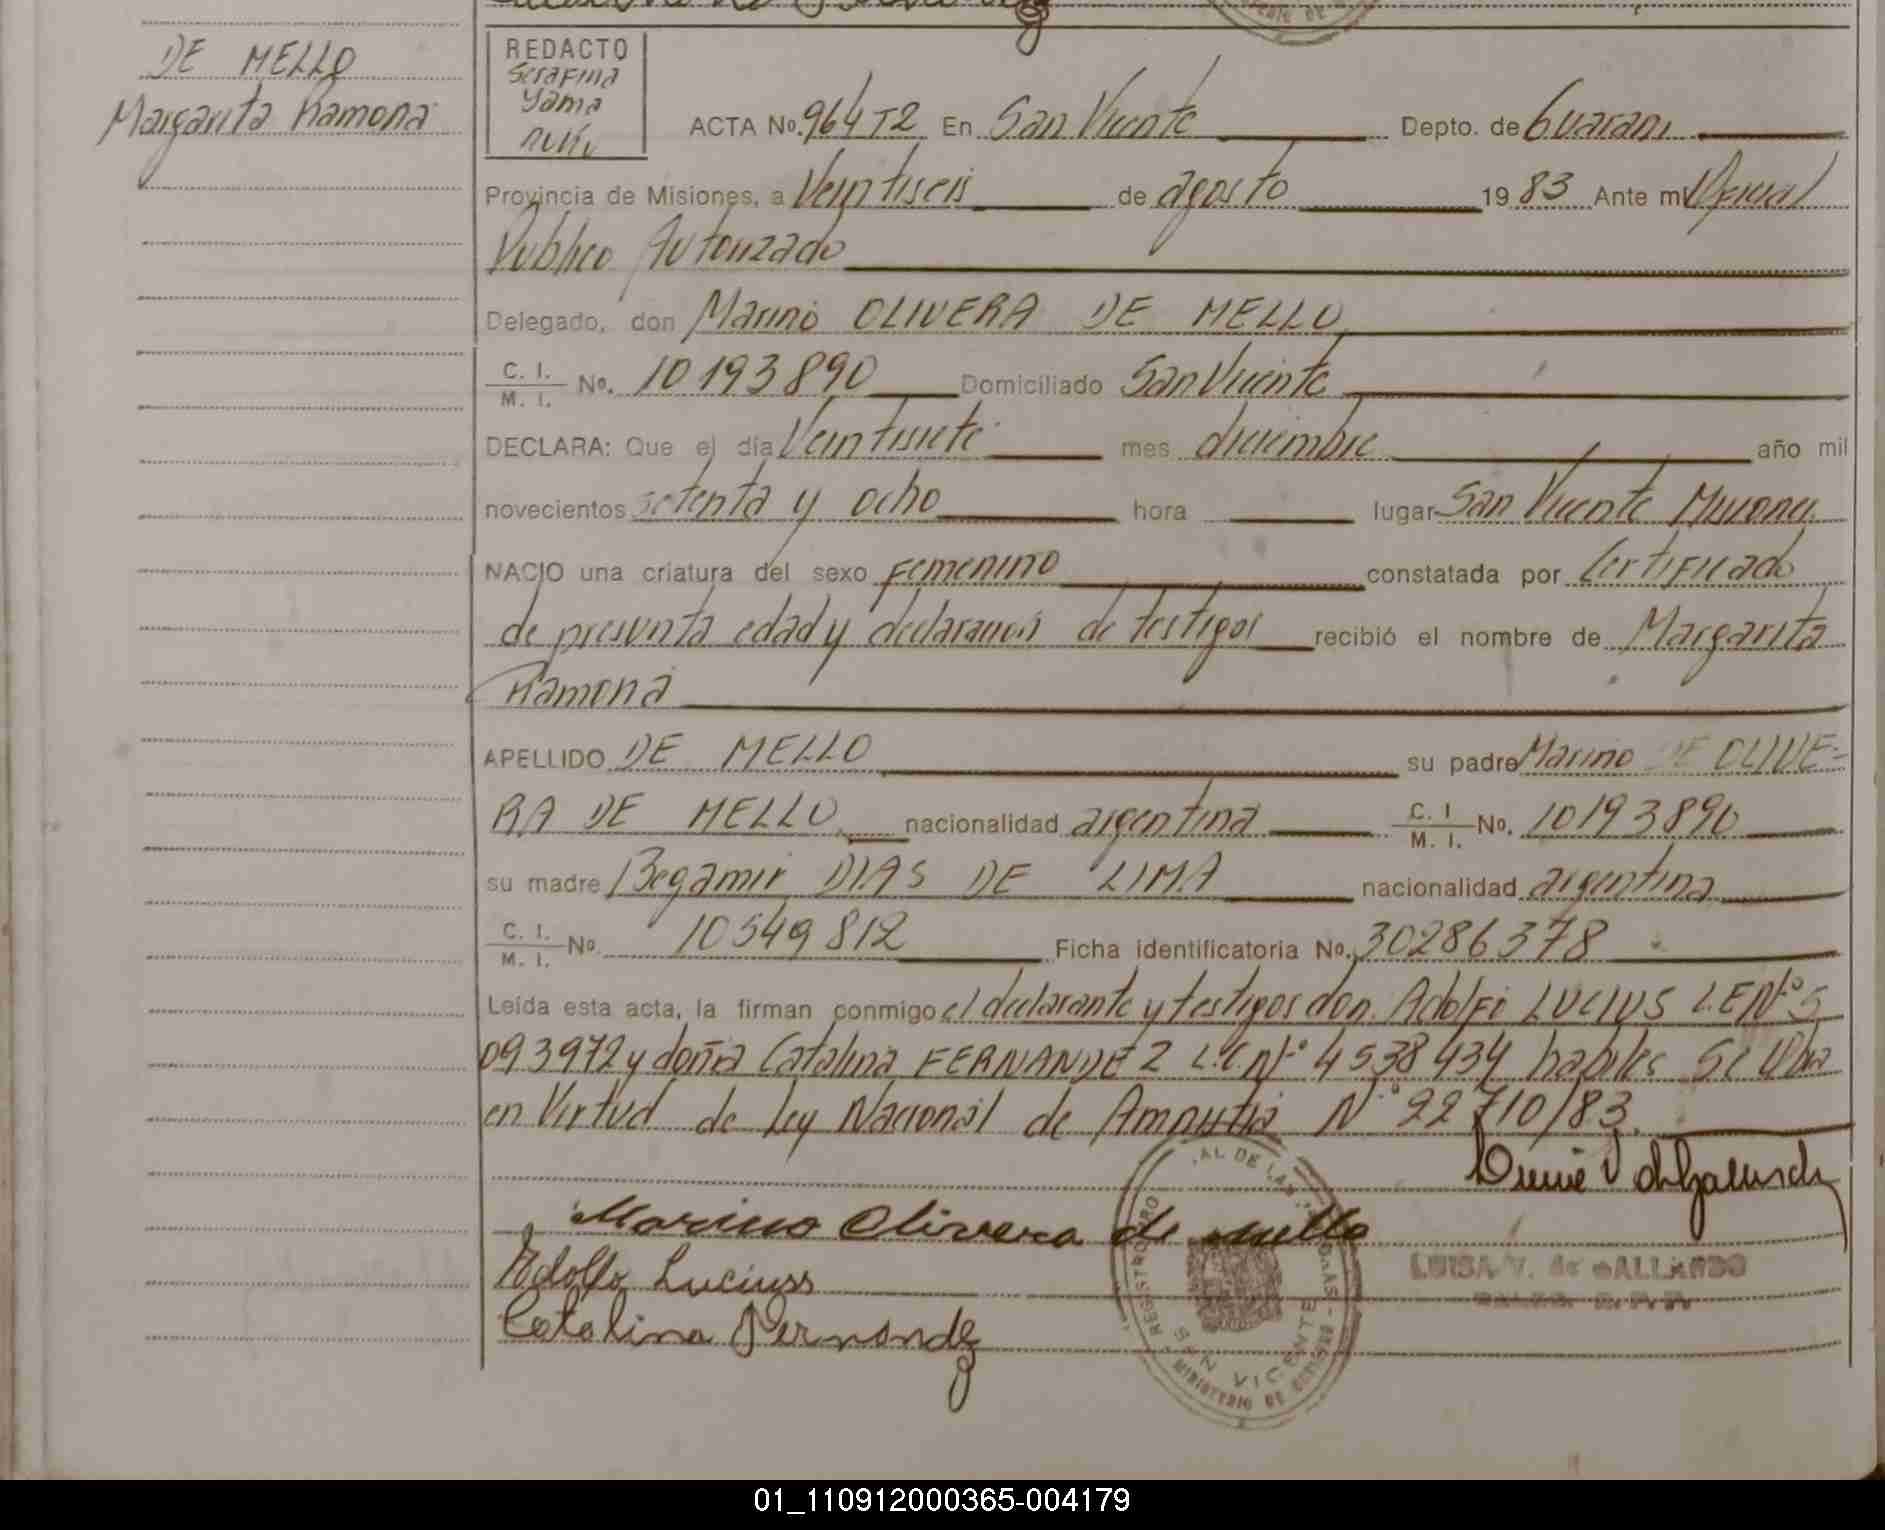 DE MELLO
Margarita Ramona
REDACTO
Serafina
Yama
ACTA No. 964 T2 En San Vicente Depto. de Guarani
Provincia de Misiones, a Veintiseis de agosto 1983 Ante mi Oficial
Publico Autorizado
Delegado, don Marino OLIVERA DE MELLO
C. I. / M. I. No. 10193890 Domiciliado San Vicente
DECLARA: Que el día Veintisiete mes diciembre año mil
novecientos setenta y ocho hora lugar San Vicente Misiones
NACIO una criatura del sexo Femenino constatada por Certificado
de presunta edad y declaracion de testigos recibió el nombre de Margarita
Ramona
APELLIDO DE MELLO su padre Marino DE OLIVE-
RA DE MELLO nacionalidad argentina C. I / M. I. No. 10193890
su madre Begamir DIAS DE LIMA nacionalidad argentina
C. I. / M. I. No. 10549812 Ficha identificatoria No. 30286378
Leída esta acta, la firman conmigo el declarante y testigos don Adolfo LUCIUS L.E N° 5
093972 y doña Catalina FERNANDEZ L.C. N° 4538434 habiles Se
en Virtud de Ley Nacional de Amnistia N° 22710/83.
Marino Olivera de Mello
Adolfo Luciuss
Catalina Fernandz
LUISA V. de GALLARDO
REGISTRO
AL DE LAS
SAN VICENTE
MINISTERIO DE
01_110912000365-004179